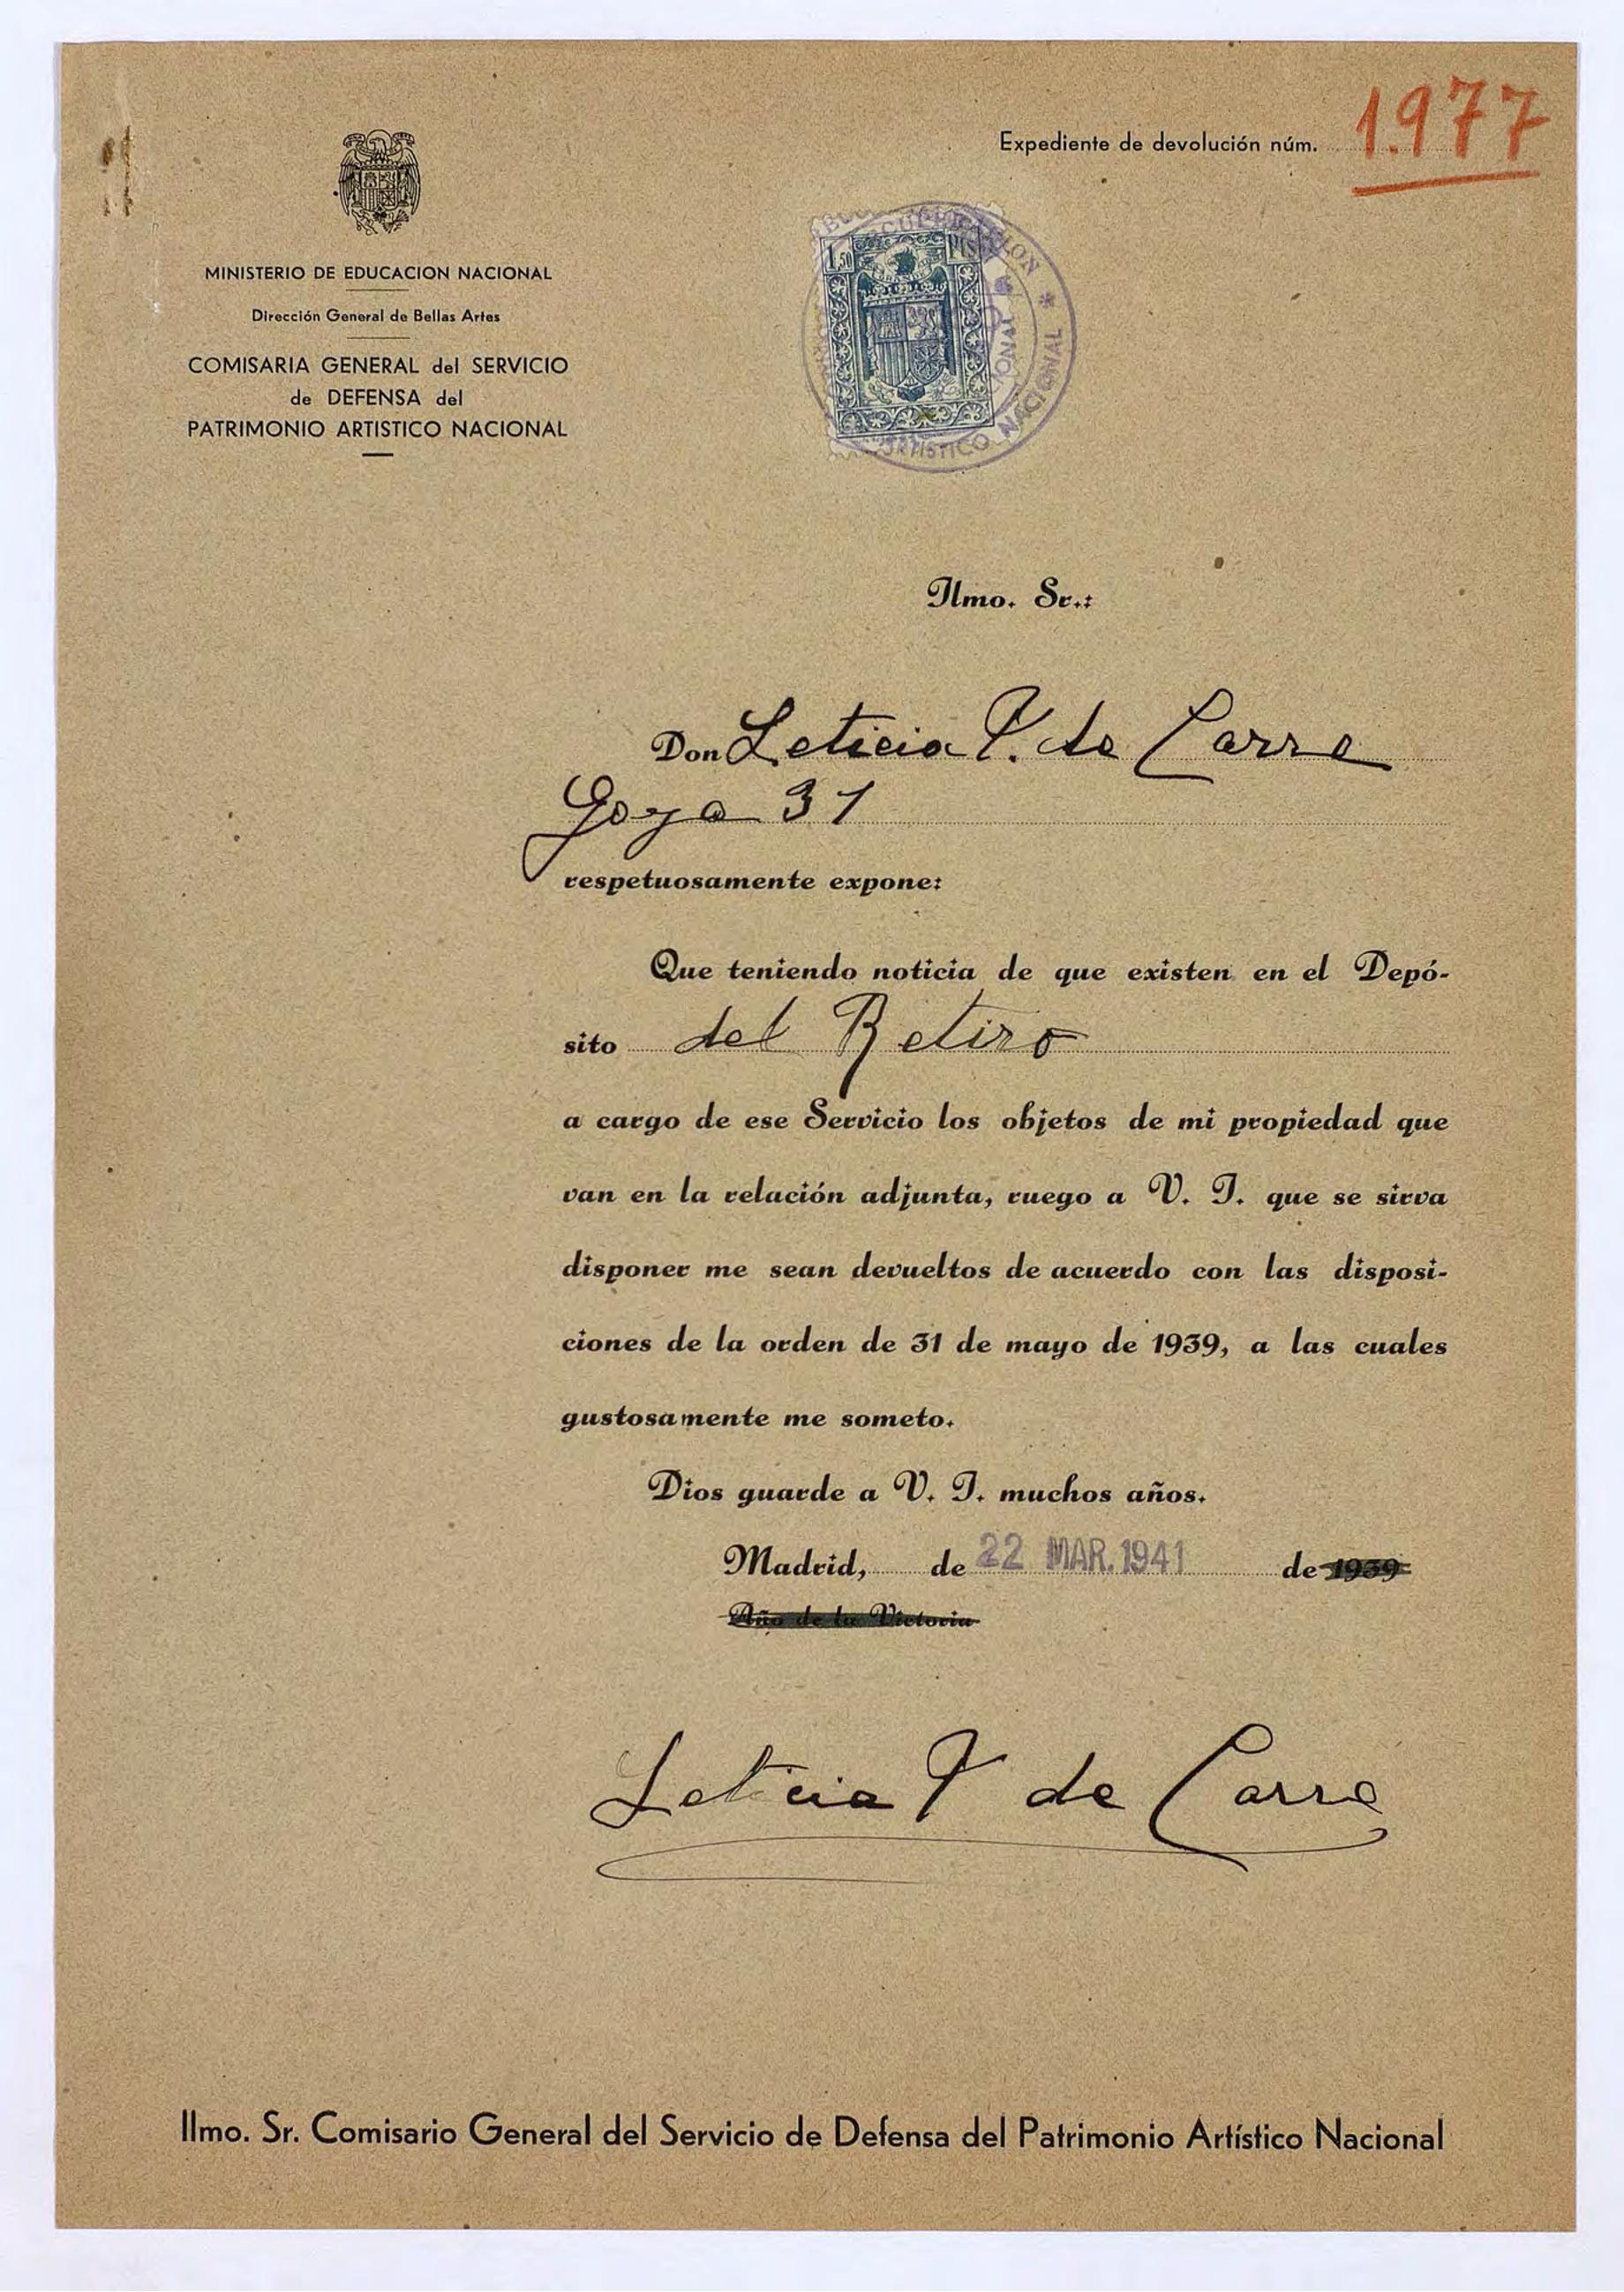 Expediente de devolución núm. 1.977
MINISTERIO DE EDUCACION NACIONAL
Dirección General de Bellas Artes
COMISARIA GENERAL del SERVICIO
de DEFENSA del
PATRIMONIO ARTISTICO NACIONAL
1,50 PTS
ARTISTICO NACIONAL
Ilmo. Sr.:
Don Leticia Y. de Carre
Goya 31
respetuosamente expone:
Que teniendo noticia de que existen en el Depó-
sito del Retiro
a cargo de ese Servicio los objetos de mi propiedad que
van en la relación adjunta, ruego a V. I. que se sirva
disponer me sean devueltos de acuerdo con las disposi-
ciones de la orden de 31 de mayo de 1939, a las cuales
gustosamente me someto.
Dios guarde a V. I. muchos años.
Madrid, de 22 MAR. 1941 de 1939
Año de la Victoria
Leticia Y de Carre
Ilmo. Sr. Comisario General del Servicio de Defensa del Patrimonio Artístico Nacional